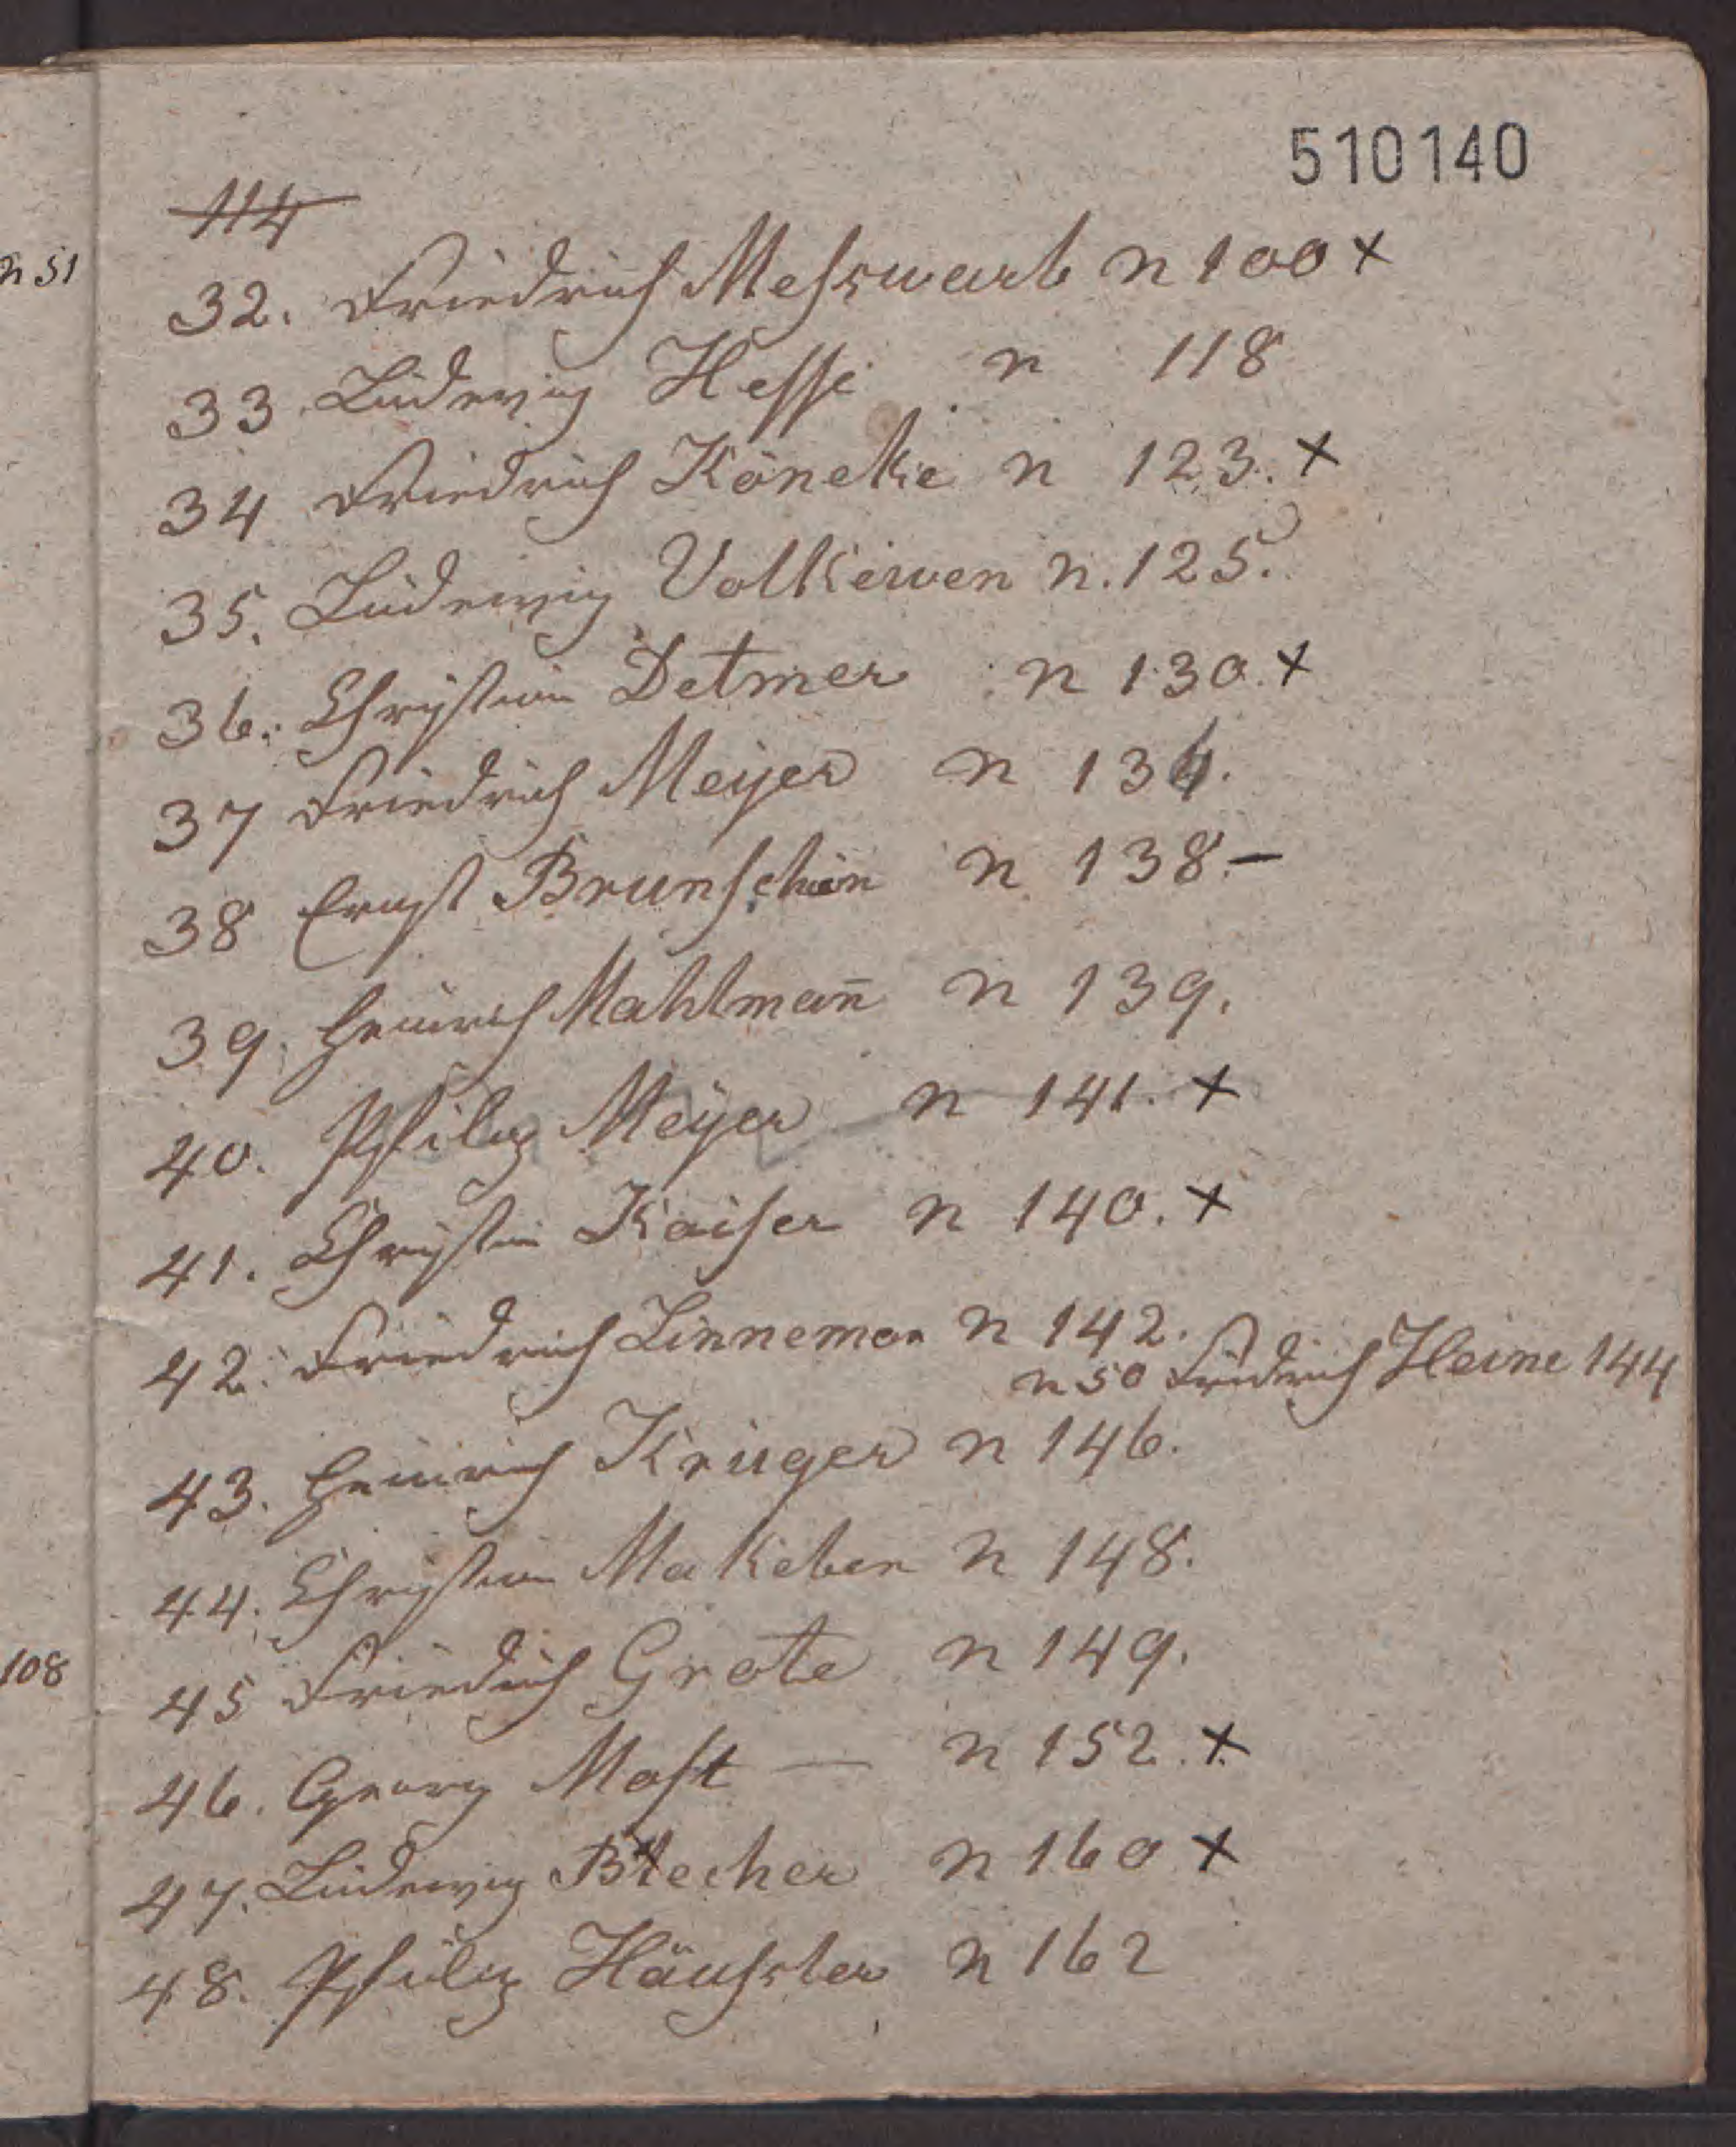 510140
114
n 51
32. Friedrich Messwarb n 100 x
33. Ludewig Hesse n 118
34 Friedrich Köneke n 123. x
35. Ludewig Volkewen n. 125.
36. Christian Detmer n 130. x
37 Friedrich Meyer n 134.
38 Ernst Brunschön n 138. —
39. Heinrich Mahlman̄ n 139.
40. Philip Meyer n 141. x
41. Christian Kaiser n 140. x
42. Friedrich Linneman n 142.
n 50 Fridrich Heine 144
43. Heinrich Krüger n 146.
44. Christian Makeben n 148.
45 Friedrich Grote n 149.
108
46. Georg Most — n 152. x
47. Ludewig Blecher n 160 x
48. Philip Häusler n 162